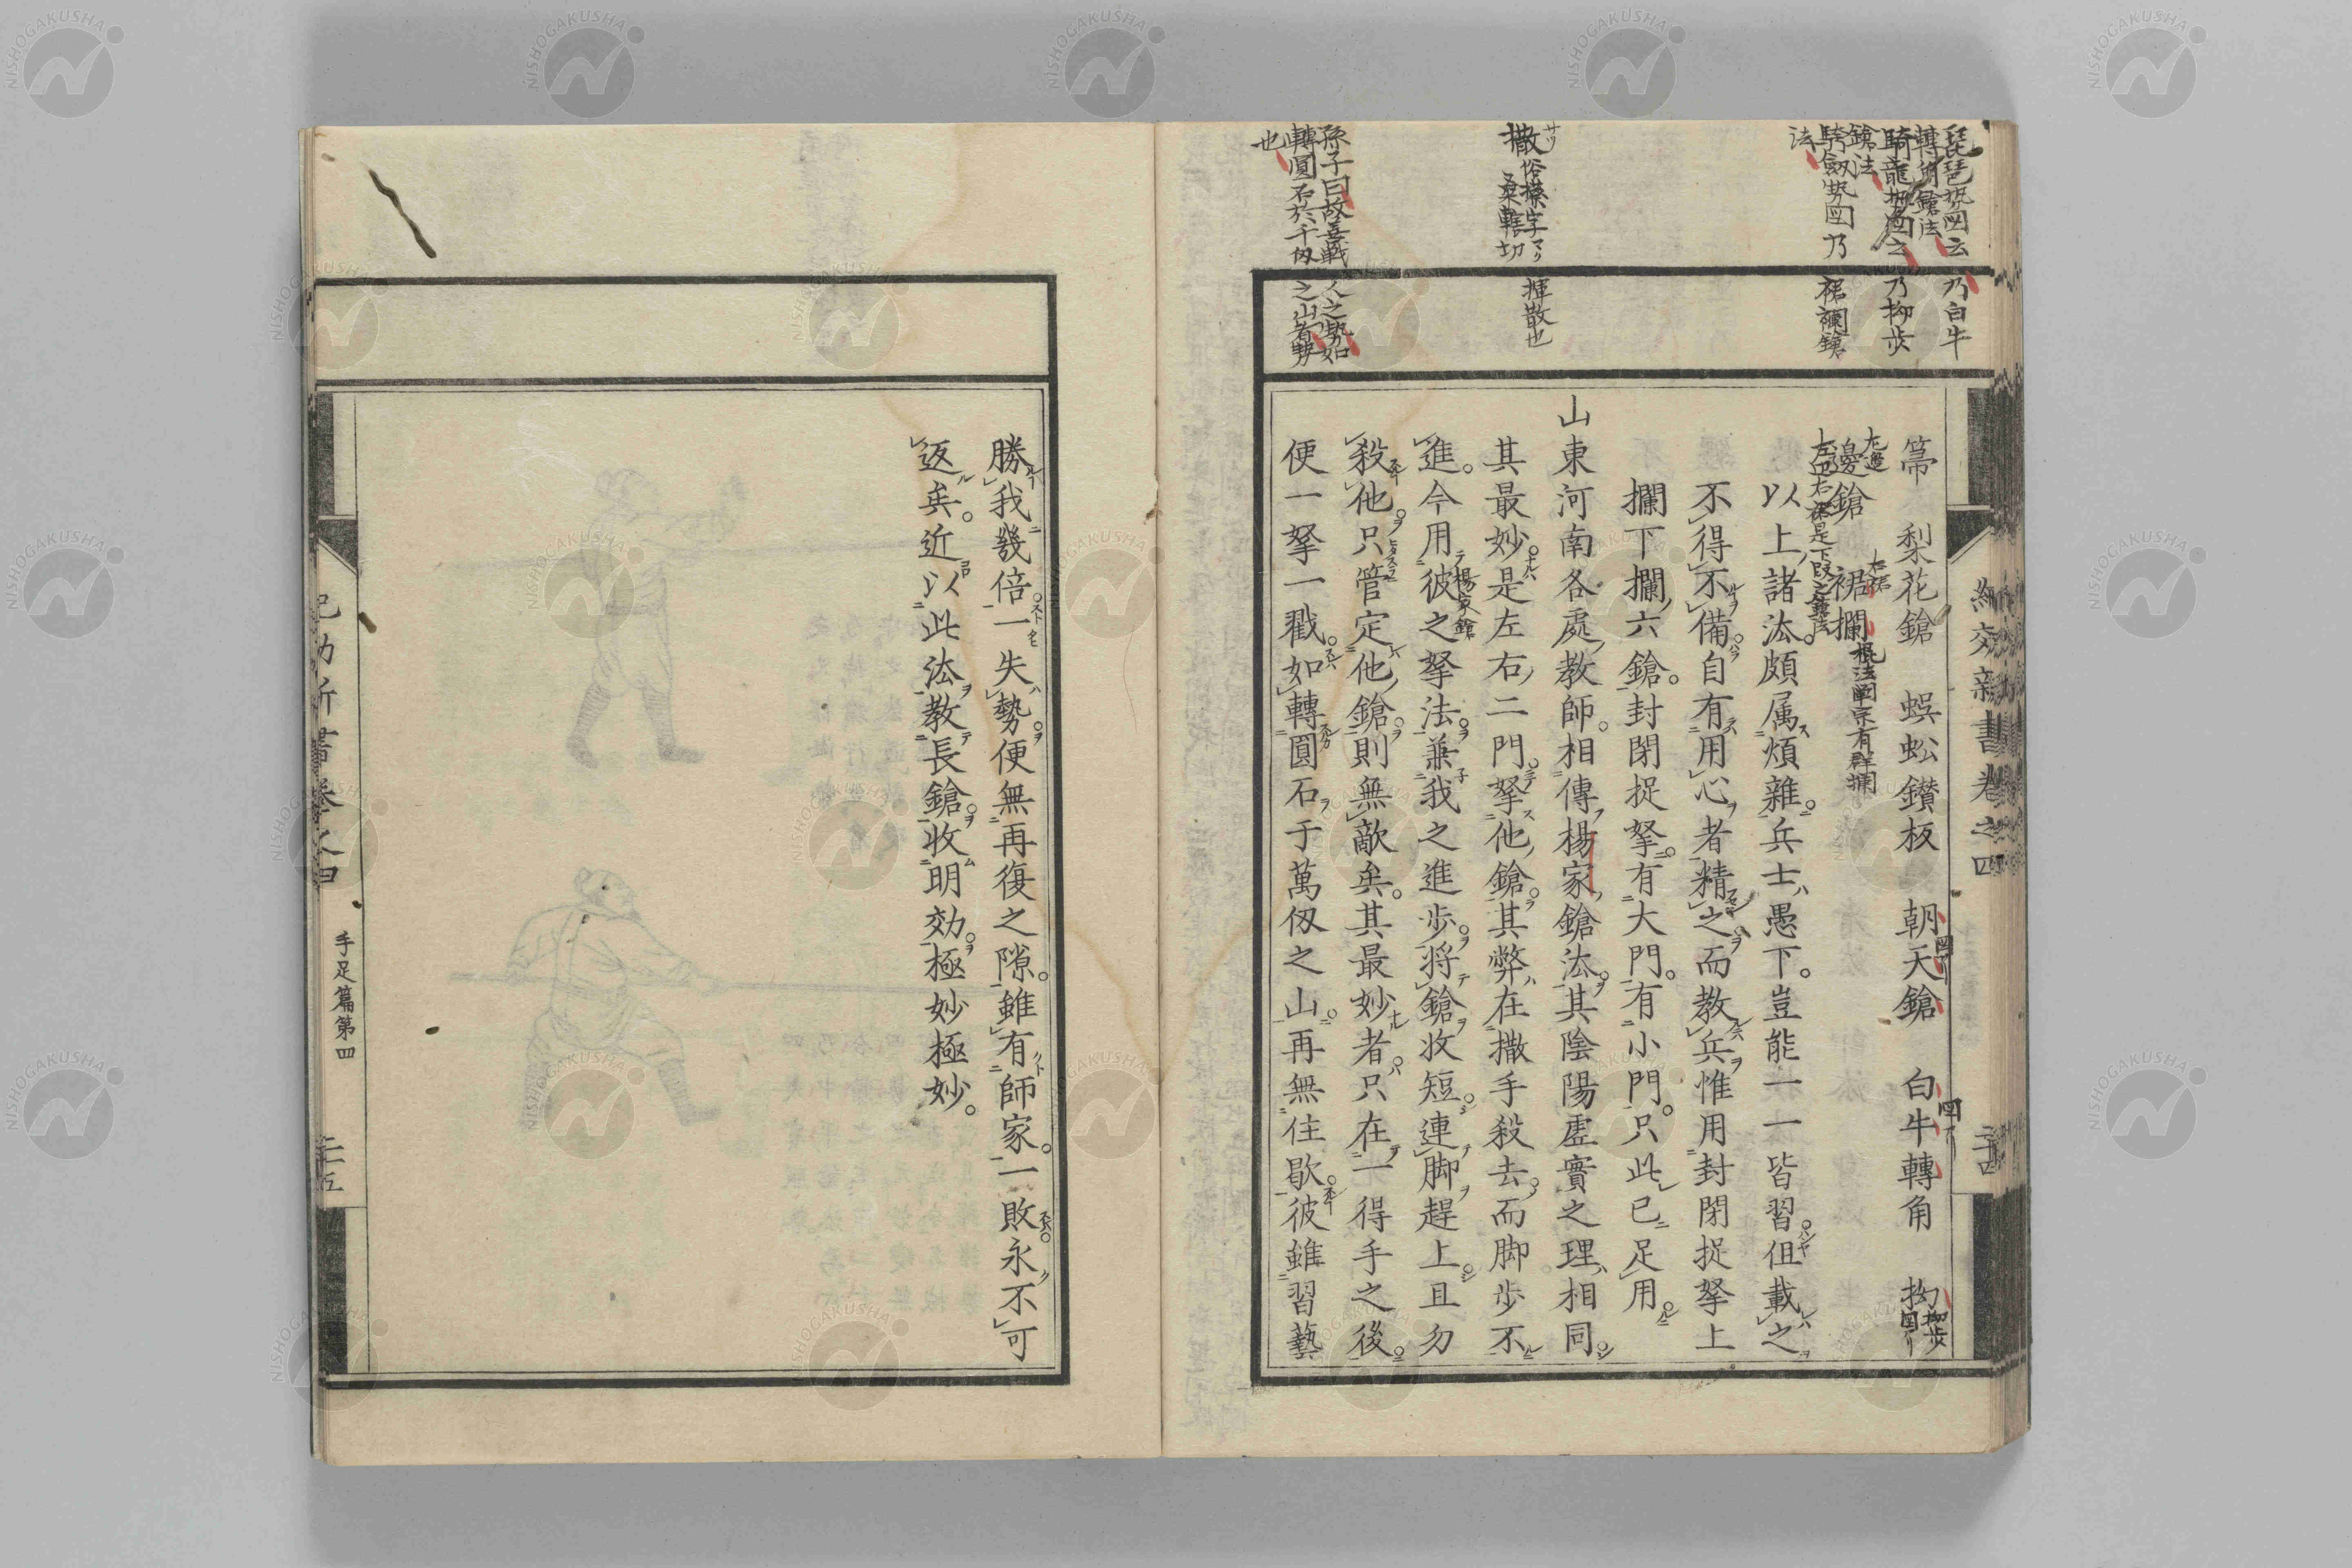 琵琶勢図云 乃白牛
轉角鎗法
騎龍勢図云 乃拗步
鎗法
騎劔勢図乃 裙襴鎗
法
撒 俗㩲字 揮散也
桑轄切
孫子曰故善戰人之勢如
轉圓石於千仭之山者勢
也
紀效新書卷之四
二十四
箒 梨花鎗 蜈蚣鑚板 朝天鎗 白牛轉角 拗
邊鎗 裙攔
左邊
右裙
棍法闡宗有群攔
以上諸法頗属煩雜兵士愚下豈能一一皆習但載之
不得不備自有用心者精之而教兵惟用封閉捉拏上
攔下攔六鎗封閉捉拏有大門有小門只此已足用
山東河南各處教師相傳楊家鎗法其陰陽虛實之理相同
其最妙是左右二門拏他鎗其弊在撒手殺去而脚步不
進今用彼之拏法兼我之進步將鎗收短連脚趕上且勿
楊家鎗
殺他只管定他鎗則無敵矣其最妙者只在一得手之後
便一拏一戳如轉圓石于萬仭之山再無住歇彼雖習藝
勝我幾倍一失勢便無再復之隙雖有師家一敗永不可
返矣近以此法教長鎗收明効極妙極妙
紀効新書卷之四
手足篇第四
二十五
NISHOGAKUSHA